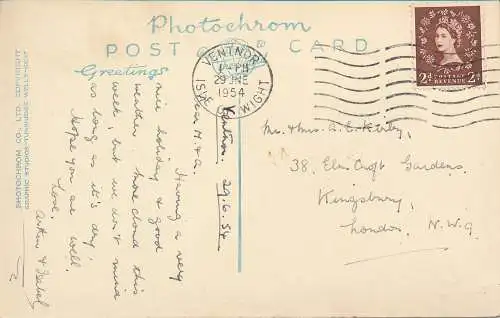 Photochrom
POST CARD
Greetings
VENTNOR
PM
29 JNE
1954
ISLE WIGHT
2D POSTAGE REVENUE 2D
PHOTOCHROM CO. LTD.
GRAPHIC STUDIOS TUNBRIDGE WELLS KENT
Ventnor. 29.6.54
Dear M. & A.
Having a very
nice holiday & good
weather. More cloud this
week, but we don't mind
as long as it's dry.
Hope you are well.
Love.
Arthur & Isabel
Mr. & Mrs. A. E. Kirby,
38, Elm Croft Gardens,
Kingsbury,
London, N.W.9